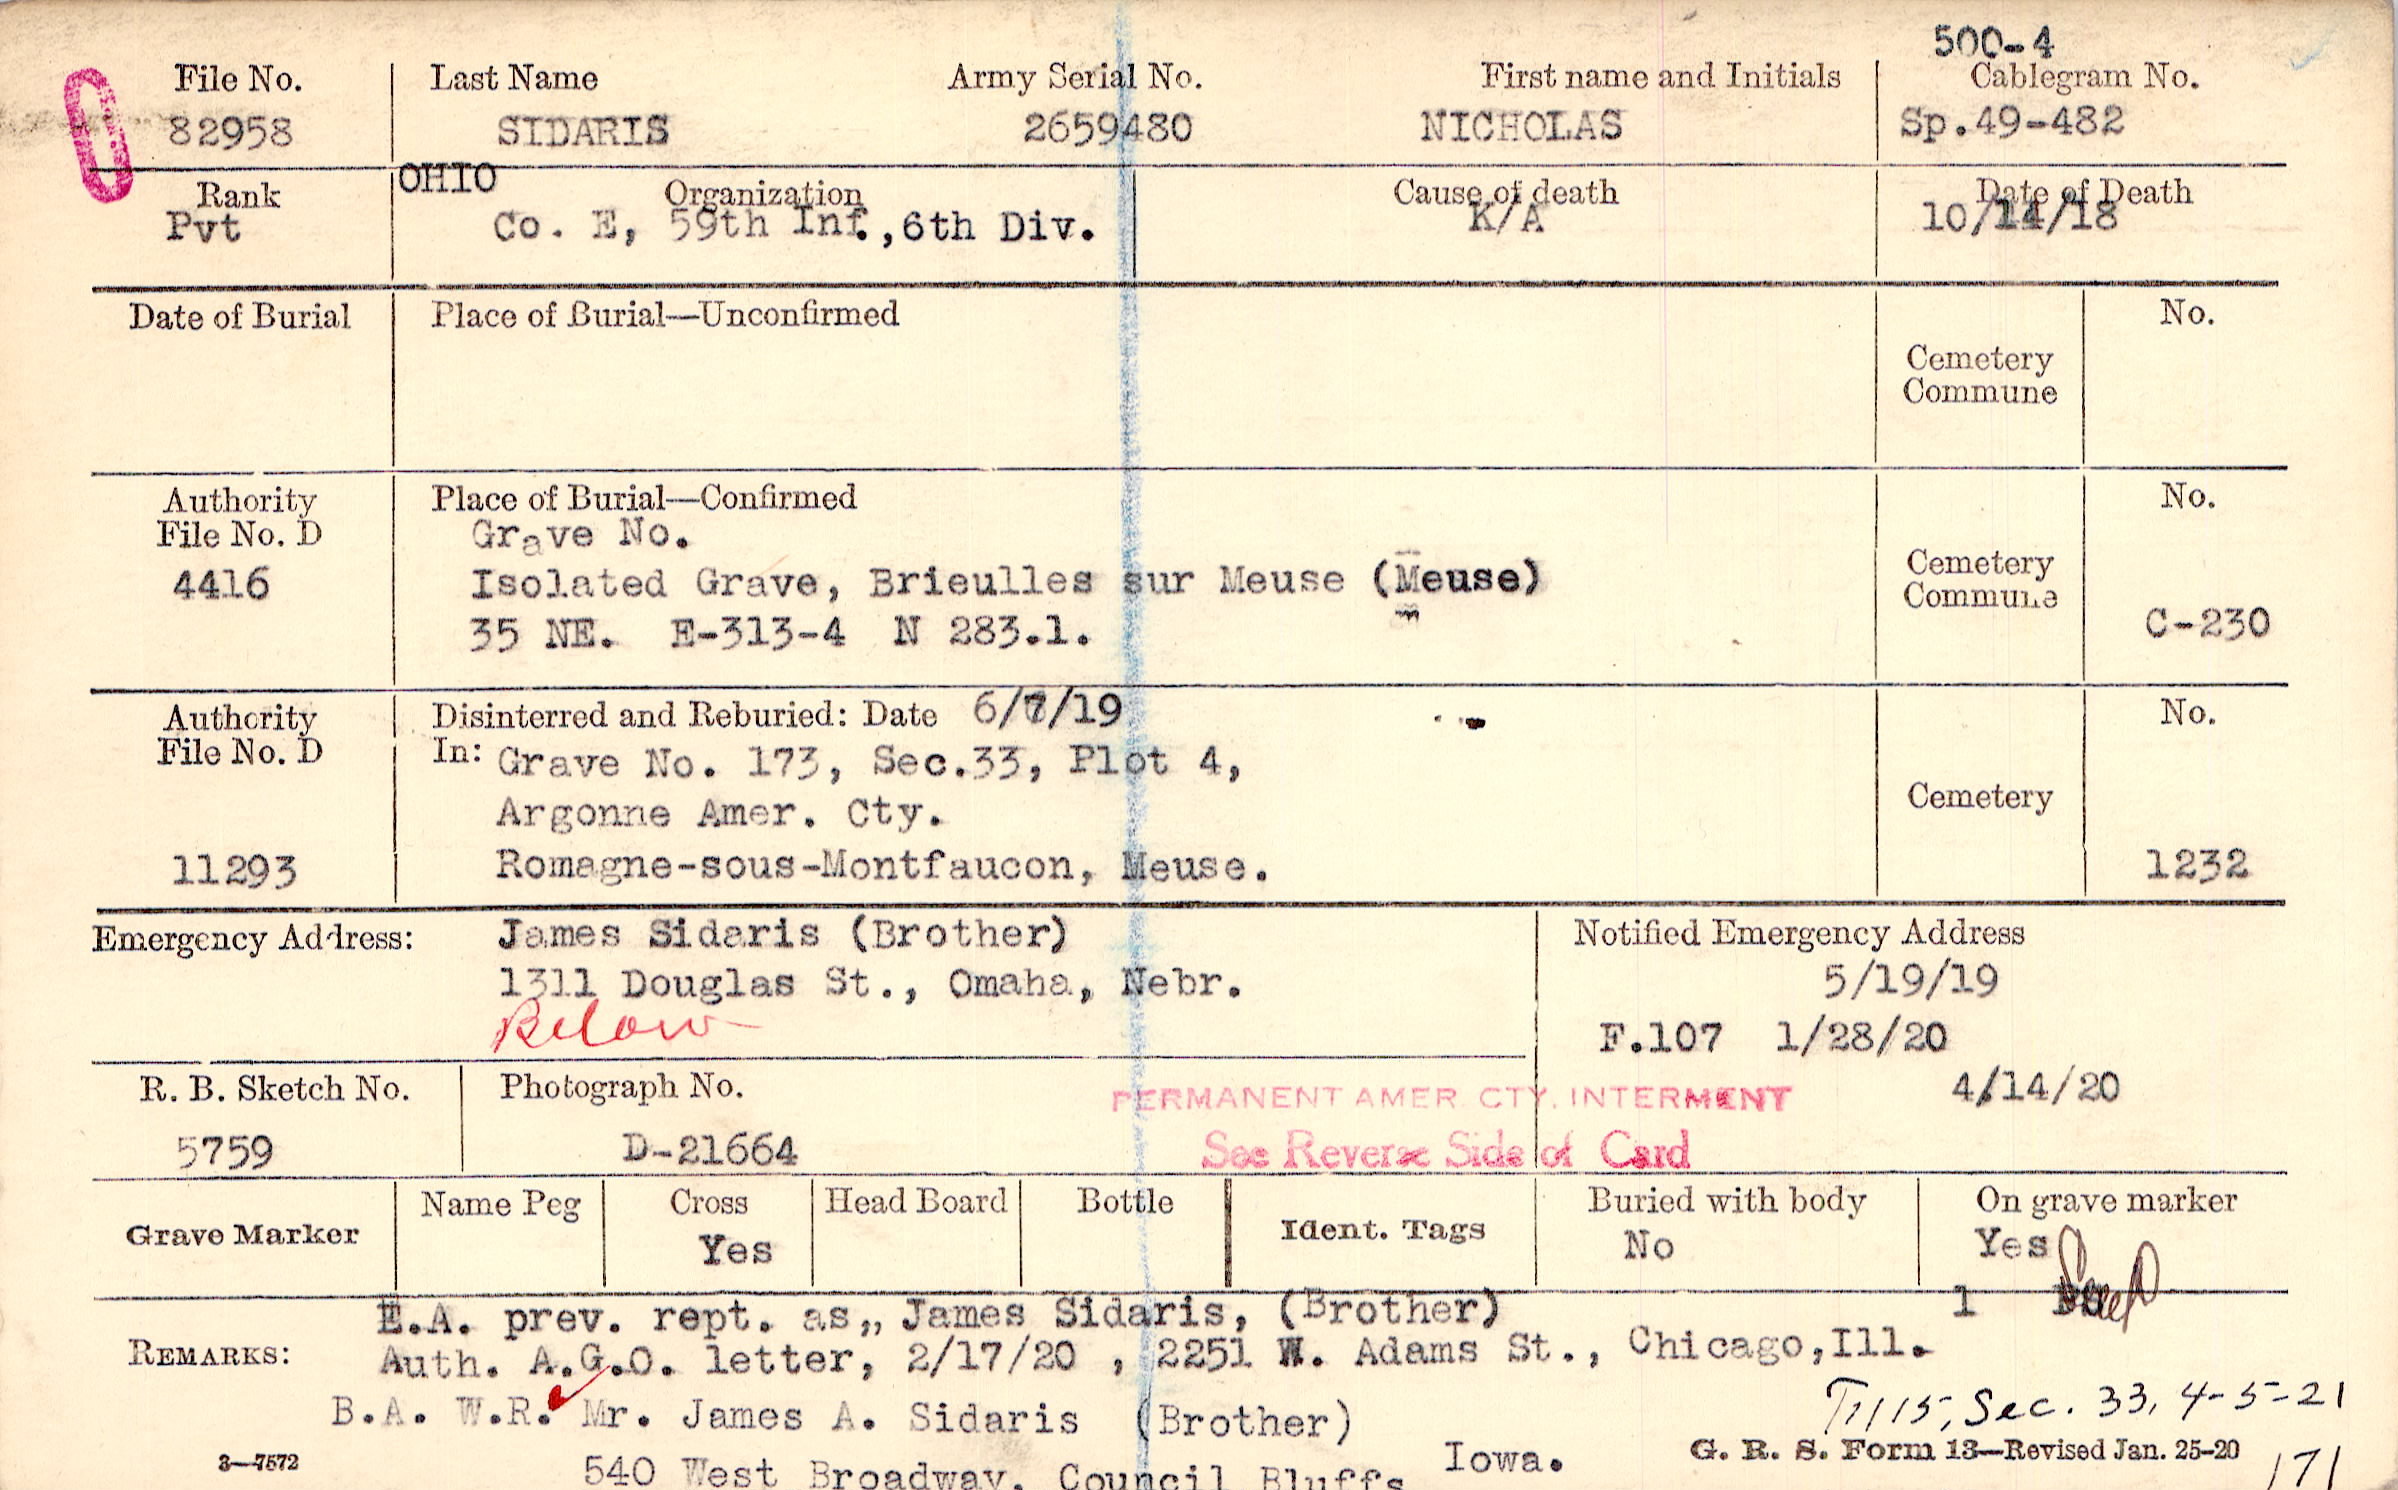 500-4
File No. Last Name Army Serial No. First name and Initials Cablegram No.
82958 SIDARIS 2659480 NICHOLAS Sp.49-482
OHIO
Rank Organization Cause of death Date of Death
Pvt Co. E, 59th Inf.,6th Div. K/A 10/14/18
Date of Burial Place of Burial—Unconfirmed No.
Cemetery
Commune
Authority Place of Burial—Confirmed No.
File No. D Grave No.
4416 Isolated Grave, Brieulles sur Meuse (Meuse) Cemetery
Commune
35 NE. E-313-4 N 283.1. C-230
Authority Disinterred and Reburied: Date 6/7/19 No.
File No. D In: Grave No. 173, Sec.33, Plot 4,
Argonne Amer. Cty. Cemetery
11293 Romagne-sous-Montfaucon, Meuse. 1232
Emergency Address: James Sidaris (Brother) Notified Emergency Address
1311 Douglas St., Omaha, Nebr. 5/19/19
Below F.107 1/28/20
R. B. Sketch No. Photograph No. PERMANENT AMER. CTY. INTERMENT 4/14/20
5759 D-21664 See Reverse Side of Card
Grave Marker Name Peg Cross Head Board Bottle Ident. Tags Buried with body On grave marker
Yes No Yes
1
E.A. prev. rept. as,, James Sidaris, (Brother)
REMARKS: Auth. A.G.O. letter, 2/17/20 , 2251 W. Adams St., Chicago,Ill.
B.A. W.R. Mr. James A. Sidaris (Brother) Sec. 33, 4-5-21
3—7572 540 West Broadway, Council Bluffs Iowa. G. R. S. Form 13—Revised Jan. 25-20
171